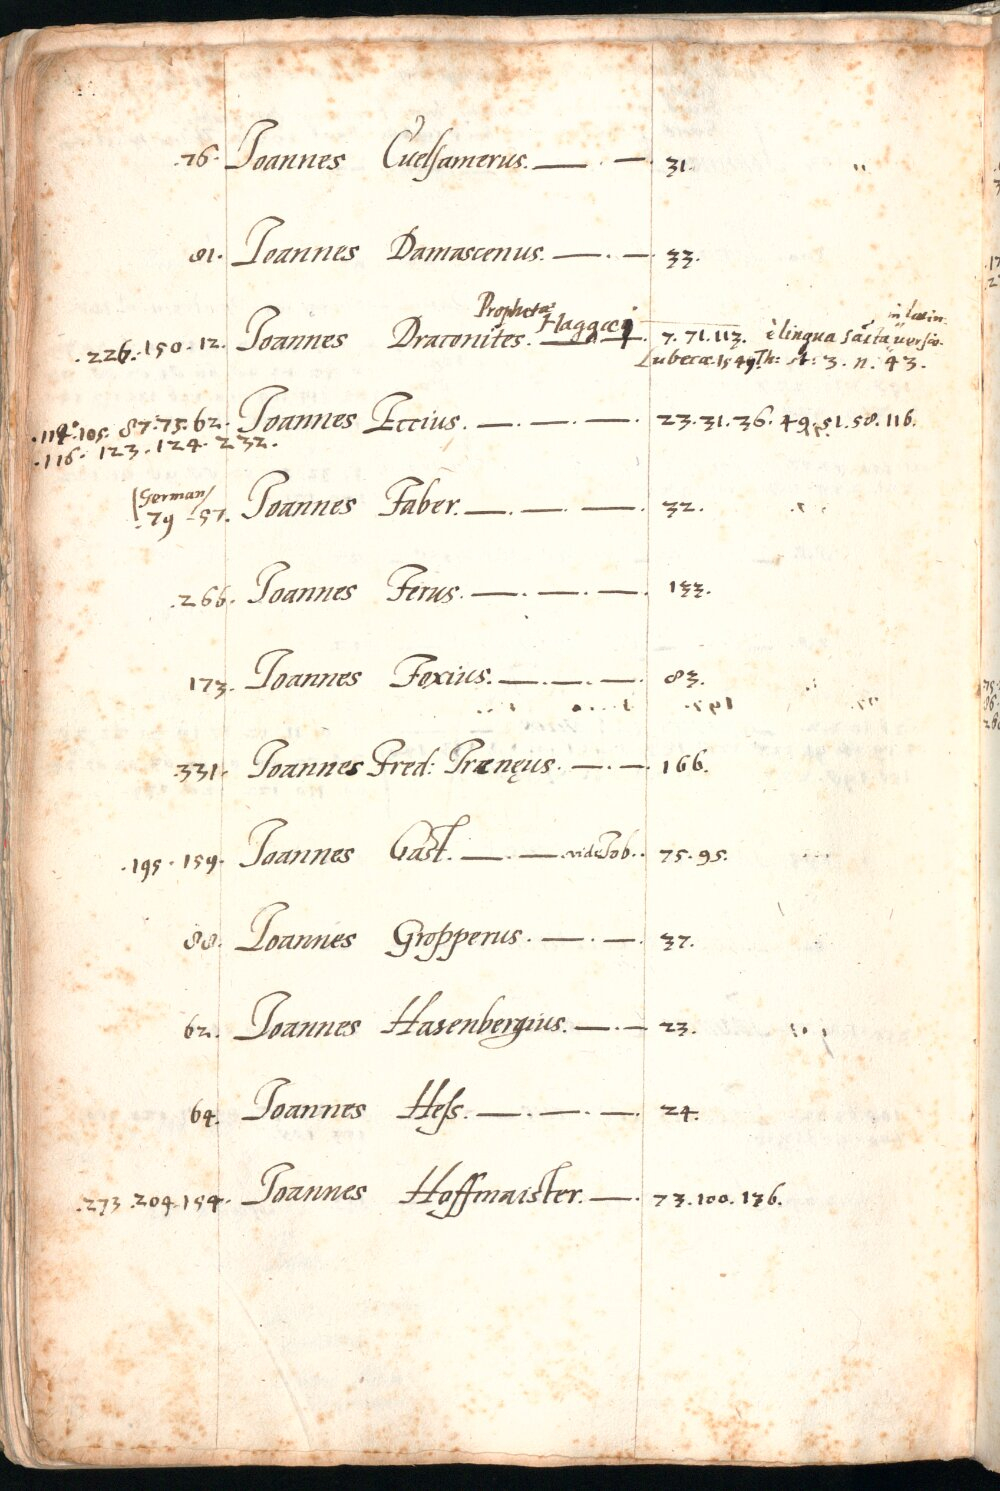 .76. Ioannes Cuelsamerus. — . — 31.
81. Ioannes Damascenus. — . — 33.
Prophetæ Haggæi in latin.
.226.150.12. Ioannes Draconites. — 7.71.113. è lingua sacta versio.
Lubecæ.1549. Th: st: 3. n. 43.
.114.105. 87.75.62. Ioannes Eccius. — . — . — 23.31.36.49.51.58.116.
.116. 123. 124. 232.
German
.79 -57. Ioannes Faber. — . — . — 32.
.266. Ioannes Ferus. — . — . — 133.
173. Ioannes Foxius. — . — . — 83.
.331. Ioannes Fred: Prænęus. — . — 166.
.195. 159. Ioannes Gast. — . — .vide Iob.. 75.95.
88. Ioannes Gropperus. — . — 37.
62. Ioannes Hasenbergius. — . — 23.
64. Ioannes Hess. — . — . — 24.
.273.204.154. Ioannes Hoffmaister. — . 73.100.136.